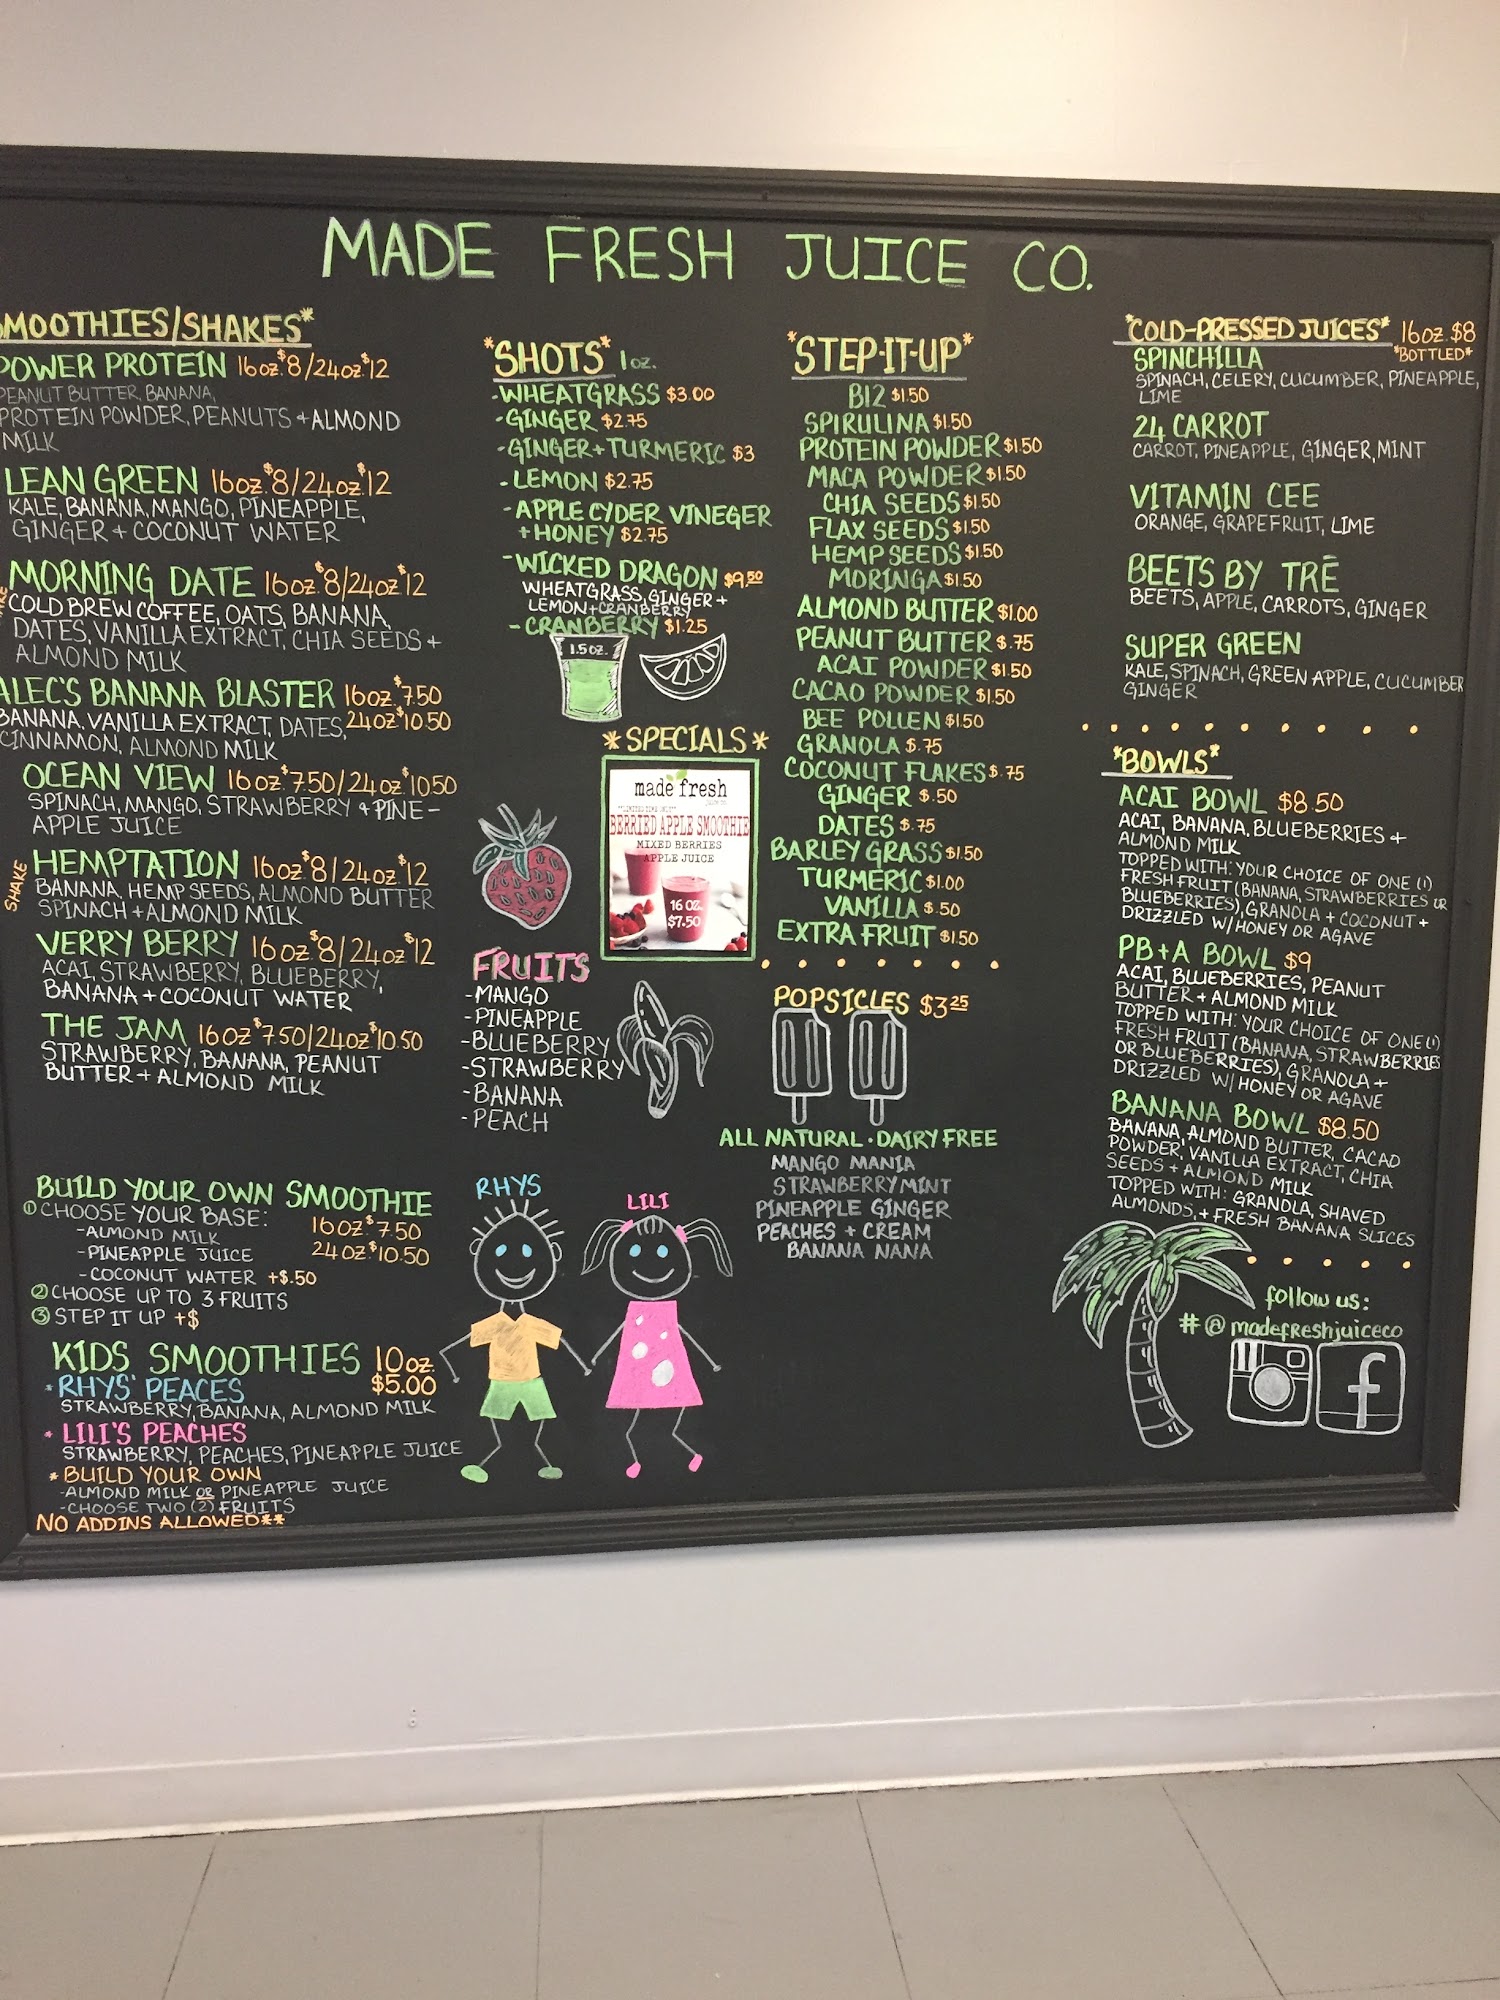 MADE FRESH JUICE CO.
SMOOTHIES/SHAKES*
POWER PROTEIN 16oz.$8/24oz.$12
PEANUT BUTTER, BANANA,
PROTEIN POWDER, PEANUTS + ALMOND
MILK
LEAN GREEN 16oz.$8/24oz.$12
KALE, BANANA, MANGO, PINEAPPLE,
GINGER + COCONUT WATER
MORNING DATE 16oz.$8/24oz.$12
COLD BREW COFFEE, OATS, BANANA,
DATES, VANILLA EXTRACT, CHIA SEEDS +
ALMOND MILK
ALEC'S BANANA BLASTER 16oz.$7.50
BANANA, VANILLA EXTRACT, DATES, 24oz.$10.50
CINNAMON, ALMOND MILK
OCEAN VIEW 16oz.$7.50/24oz.$10.50
SPINACH, MANGO, STRAWBERRY + PINE-
APPLE JUICE
SHAKE
HEMPTATION 16oz.$8/24oz.$12
BANANA, HEMP SEEDS, ALMOND BUTTER
SPINACH + ALMOND MILK
VERRY BERRY 16oz.$8/24oz.$12
ACAI, STRAWBERRY, BLUEBERRY,
BANANA + COCONUT WATER
THE JAM 16oz.$7.50/24oz.$10.50
STRAWBERRY, BANANA, PEANUT
BUTTER + ALMOND MILK
BUILD YOUR OWN SMOOTHIE
① CHOOSE YOUR BASE: 16oz.$7.50
-ALMOND MILK
-PINEAPPLE JUICE 24oz.$10.50
-COCONUT WATER +$.50
② CHOOSE UP TO 3 FRUITS
③ STEP IT UP +$
KIDS SMOOTHIES 10oz.
$5.00
* RHYS' PEACES
STRAWBERRY, BANANA, ALMOND MILK
* LILI'S PEACHES
STRAWBERRY, PEACHES, PINEAPPLE JUICE
* BUILD YOUR OWN
-ALMOND MILK OR PINEAPPLE JUICE
-CHOOSE TWO (2) FRUITS
NO ADDINS ALLOWED**
*SHOTS* 1oz.
-WHEATGRASS $3.00
-GINGER $2.75
-GINGER+TURMERIC $3
-LEMON $2.75
-APPLE CYDER VINEGER
+HONEY $2.75
-WICKED DRAGON $9.50
WHEATGRASS, GINGER +
LEMON+CRANBERRY
-CRANBERRY $1.25
1.5 OZ.
*SPECIALS*
made fresh
JUICE CO.
**LIMITED TIME ONLY**
BERRIED APPLE SMOOTHIE
MIXED BERRIES
APPLE JUICE
16 OZ.
$7.50
FRUITS
-MANGO
-PINEAPPLE
-BLUEBERRY
-STRAWBERRY
-BANANA
-PEACH
RHYS
LILI
*STEP-IT-UP*
B12 $1.50
SPIRULINA $1.50
PROTEIN POWDER $1.50
MACA POWDER $1.50
CHIA SEEDS $1.50
FLAX SEEDS $1.50
HEMP SEEDS $1.50
MORINGA $1.50
ALMOND BUTTER $1.00
PEANUT BUTTER $.75
ACAI POWDER $1.50
CACAO POWDER $1.50
BEE POLLEN $1.50
GRANOLA $.75
COCONUT FLAKES $.75
GINGER $.50
DATES $.75
BARLEY GRASS $1.50
TURMERIC $1.00
VANILLA $.50
EXTRA FRUIT $1.50
POPSICLES $3.25
ALL NATURAL · DAIRY FREE
MANGO MANIA
STRAWBERRY MINT
PINEAPPLE GINGER
PEACHES + CREAM
BANANA NANA
*COLD-PRESSED JUICES* 16oz.$8
*BOTTLED*
SPINCHILLA
SPINACH, CELERY, CUCUMBER, PINEAPPLE,
LIME
24 CARROT
CARROT, PINEAPPLE, GINGER, MINT
VITAMIN CEE
ORANGE, GRAPEFRUIT, LIME
BEETS BY TRĒ
BEETS, APPLE, CARROTS, GINGER
SUPER GREEN
KALE, SPINACH, GREEN APPLE, CUCUMBER
GINGER
*BOWLS*
ACAI BOWL $8.50
ACAI, BANANA, BLUEBERRIES +
ALMOND MILK
TOPPED WITH: YOUR CHOICE OF ONE (1)
FRESH FRUIT (BANANA, STRAWBERRIES OR
BLUEBERRIES), GRANOLA + COCONUT +
DRIZZLED W/HONEY OR AGAVE
PB+A BOWL $9
ACAI, BLUEBERRIES, PEANUT
BUTTER + ALMOND MILK
TOPPED WITH: YOUR CHOICE OF ONE (1)
FRESH FRUIT (BANANA, STRAWBERRIES
OR BLUEBERRIES), GRANOLA +
DRIZZLED W/HONEY OR AGAVE
BANANA BOWL $8.50
BANANA, ALMOND BUTTER, CACAO
POWDER, VANILLA EXTRACT, CHIA
SEEDS + ALMOND MILK
TOPPED WITH: GRANOLA, SHAVED
ALMONDS, + FRESH BANANA SLICES
follow us:
# @ madefreshjuiceco
f